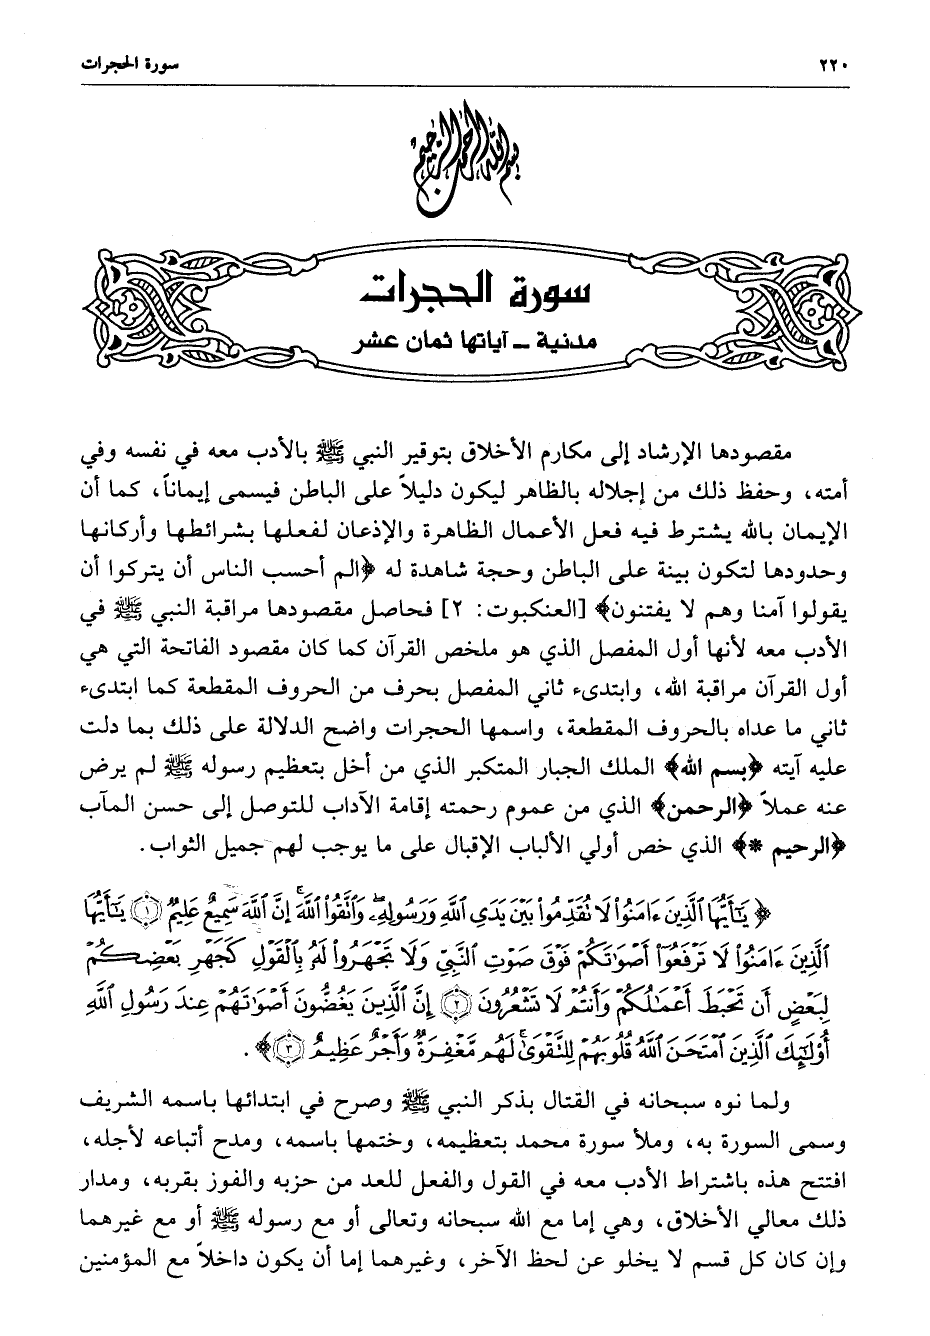 ٢٢٠ سورة الحجرات
بسم الله الرحمن الرحيم
سورة الحجرات
مدنية ـ آياتها ثمان عشر
مقصودها الإرشاد إلى مكارم الأخلاق بتوقير النبي ﷺ بالأدب معه في نفسه وفي
أمته، وحفظ ذلك من إجلاله بالظاهر ليكون دليلاً على الباطن فيسمى إيماناً، كما أن
الإيمان بالله يشترط فيه فعل الأعمال الظاهرة والإذعان لفعلها بشرائطها وأركانها
وحدودها لتكون بينة على الباطن وحجة شاهدة له ﴿الم أحسب الناس أن يتركوا أن
يقولوا آمنا وهم لا يفتنون﴾ [العنكبوت: ٢] فحاصل مقصودها مراقبة النبي ﷺ في
الأدب معه لأنها أول المفصل الذي هو ملخص القرآن كما كان مقصود الفاتحة التي هي
أول القرآن مراقبة الله، وابتدىء ثاني المفصل بحرف من الحروف المقطعة كما ابتدىء
ثاني ما عداه بالحروف المقطعة، واسمها الحجرات واضح الدلالة على ذلك بما دلت
عليه آيته ﴿بسم الله﴾ الملك الجبار المتكبر الذي من أخل بتعظيم رسوله ﷺ لم يرض
عنه عملاً ﴿الرحمن﴾ الذي من عموم رحمته إقامة الآداب للتوصل إلى حسن المآب
﴿الرحيم *﴾ الذي خص أولي الألباب الإقبال على ما يوجب لهم جميل الثواب.
﴿يَٰٓأَيُّهَا ٱلَّذِينَ ءَامَنُوا۟ لَا تُقَدِّمُوا۟ بَيْنَ يَدَىِ ٱللَّهِ وَرَسُولِهِۦ ۖ وَٱتَّقُوا۟ ٱللَّهَ ۚ إِنَّ ٱللَّهَ سَمِيعٌ عَلِيمٌ ١ يَٰٓأَيُّهَا
ٱلَّذِينَ ءَامَنُوا۟ لَا تَرْفَعُوٓا۟ أَصْوَٰتَكُمْ فَوْقَ صَوْتِ ٱلنَّبِىِّ وَلَا تَجْهَرُوا۟ لَهُۥ بِٱلْقَوْلِ كَجَهْرِ بَعْضِكُمْ
لِبَعْضٍ أَن تَحْبَطَ أَعْمَٰلُكُمْ وَأَنتُمْ لَا تَشْعُرُونَ ٢ إِنَّ ٱلَّذِينَ يَغُضُّونَ أَصْوَٰتَهُمْ عِندَ رَسُولِ ٱللَّهِ
أُو۟لَٰٓئِكَ ٱلَّذِينَ ٱمْتَحَنَ ٱللَّهُ قُلُوبَهُمْ لِلتَّقْوَىٰ ۚ لَهُم مَّغْفِرَةٌ وَأَجْرٌ عَظِيمٌ ٣﴾.
ولما نوه سبحانه في القتال بذكر النبي ﷺ وصرح في ابتدائها باسمه الشريف
وسمى السورة به، وملأ سورة محمد بتعظيمه، وختمها باسمه، ومدح أتباعه لأجله،
افتتح هذه باشتراط الأدب معه في القول والفعل للعد من حزبه والفوز بقربه، ومدار
ذلك معالي الأخلاق، وهي إما مع الله سبحانه وتعالى أو مع رسوله ﷺ أو مع غيرهما
وإن كان كل قسم لا يخلو عن لحظ الآخر، وغيرهما إما أن يكون داخلاً مع المؤمنين